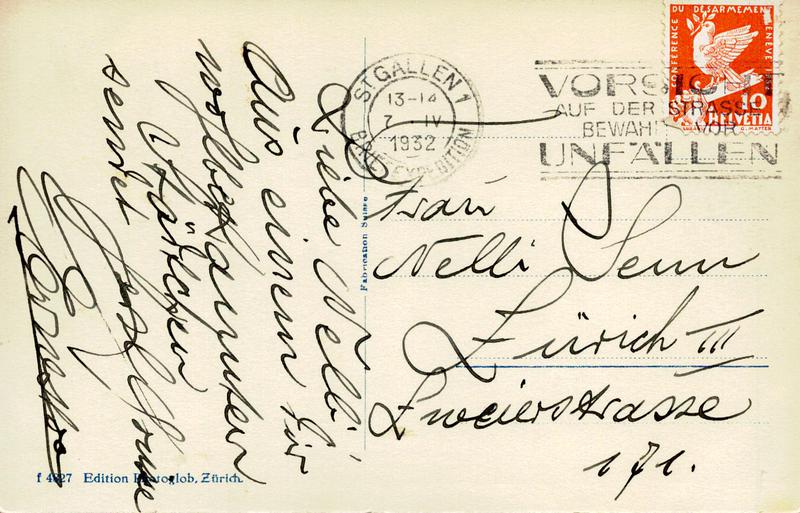 Liebe Nelli
Aus einem für
wohlbekannten
Städtchen
sendet
CONFERENCE DU DÉSARMEMENT GENÈVE 1932
10
HELVETIA
ST. GALLEN 1
13-14
7. IV
1932
BRIEFEXPEDITION
VORSICHT
AUF DER STRASSE
BEWAHRT VOR
UNFÄLLEN
Frau
Nelli Senn
Zürich III
Zweierstrasse
171.
Fabrication Suisse
Edition Photoglob, Zürich.